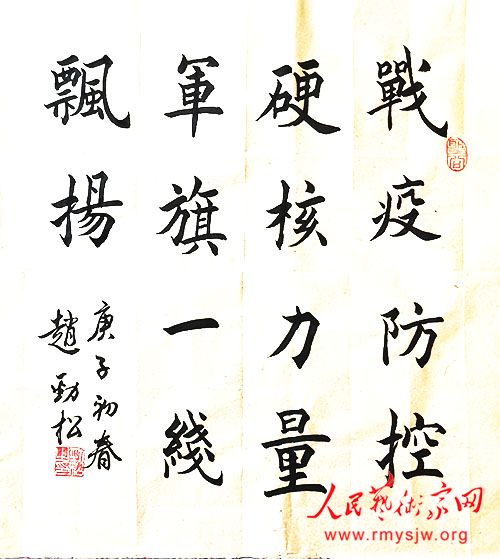 戰疫防控
硬核力量
軍旗一綫
飄揚
庚子初春
趙勁松
人民艺术家网
www.rmysjw.org